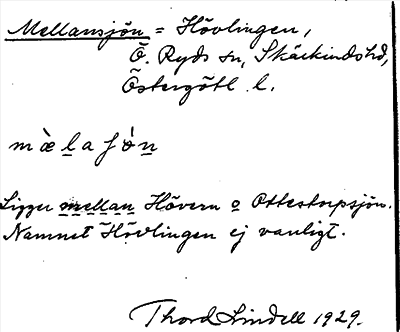 Mellansjön = Hövlingen,
Ö. Ryds sn, Skärkinds hd,
Östergötl. l.
mæ̀laʃòn
Ligger mellan Hövern o Ottestorpsjön.
Namnet Hövlingen ej vanligt.
Thord Lindell 1929.